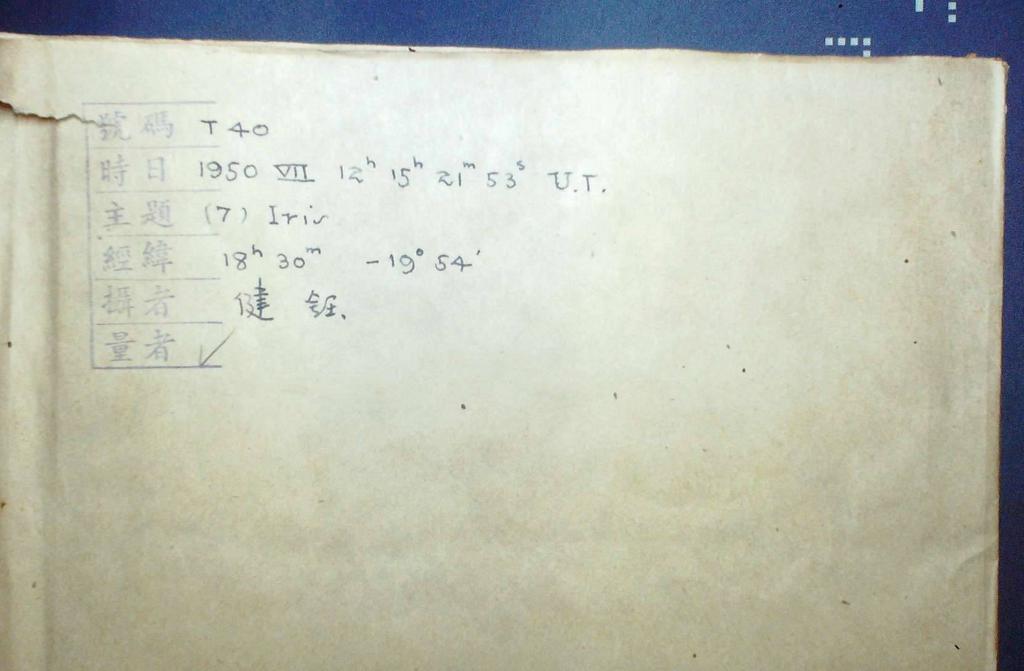 號碼 T 40
時日 1950 VII 12ʰ 15ʰ 21ᵐ 53ˢ U.T.
主題 (7) Iris
經緯 18ʰ 30ᵐ -19° 54′
攝者 健
量者